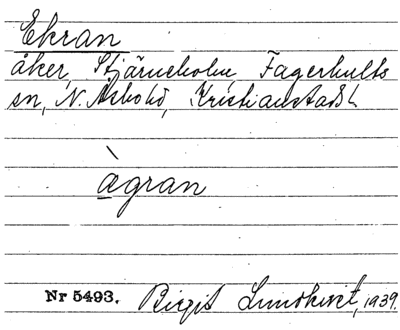 Ekran
åker, Stjärneholm, Fagerhults
sn, N. Åsbohd, Kristianstads l.
ægran
Nr 5493. Birgit Lundkvist, 1939.